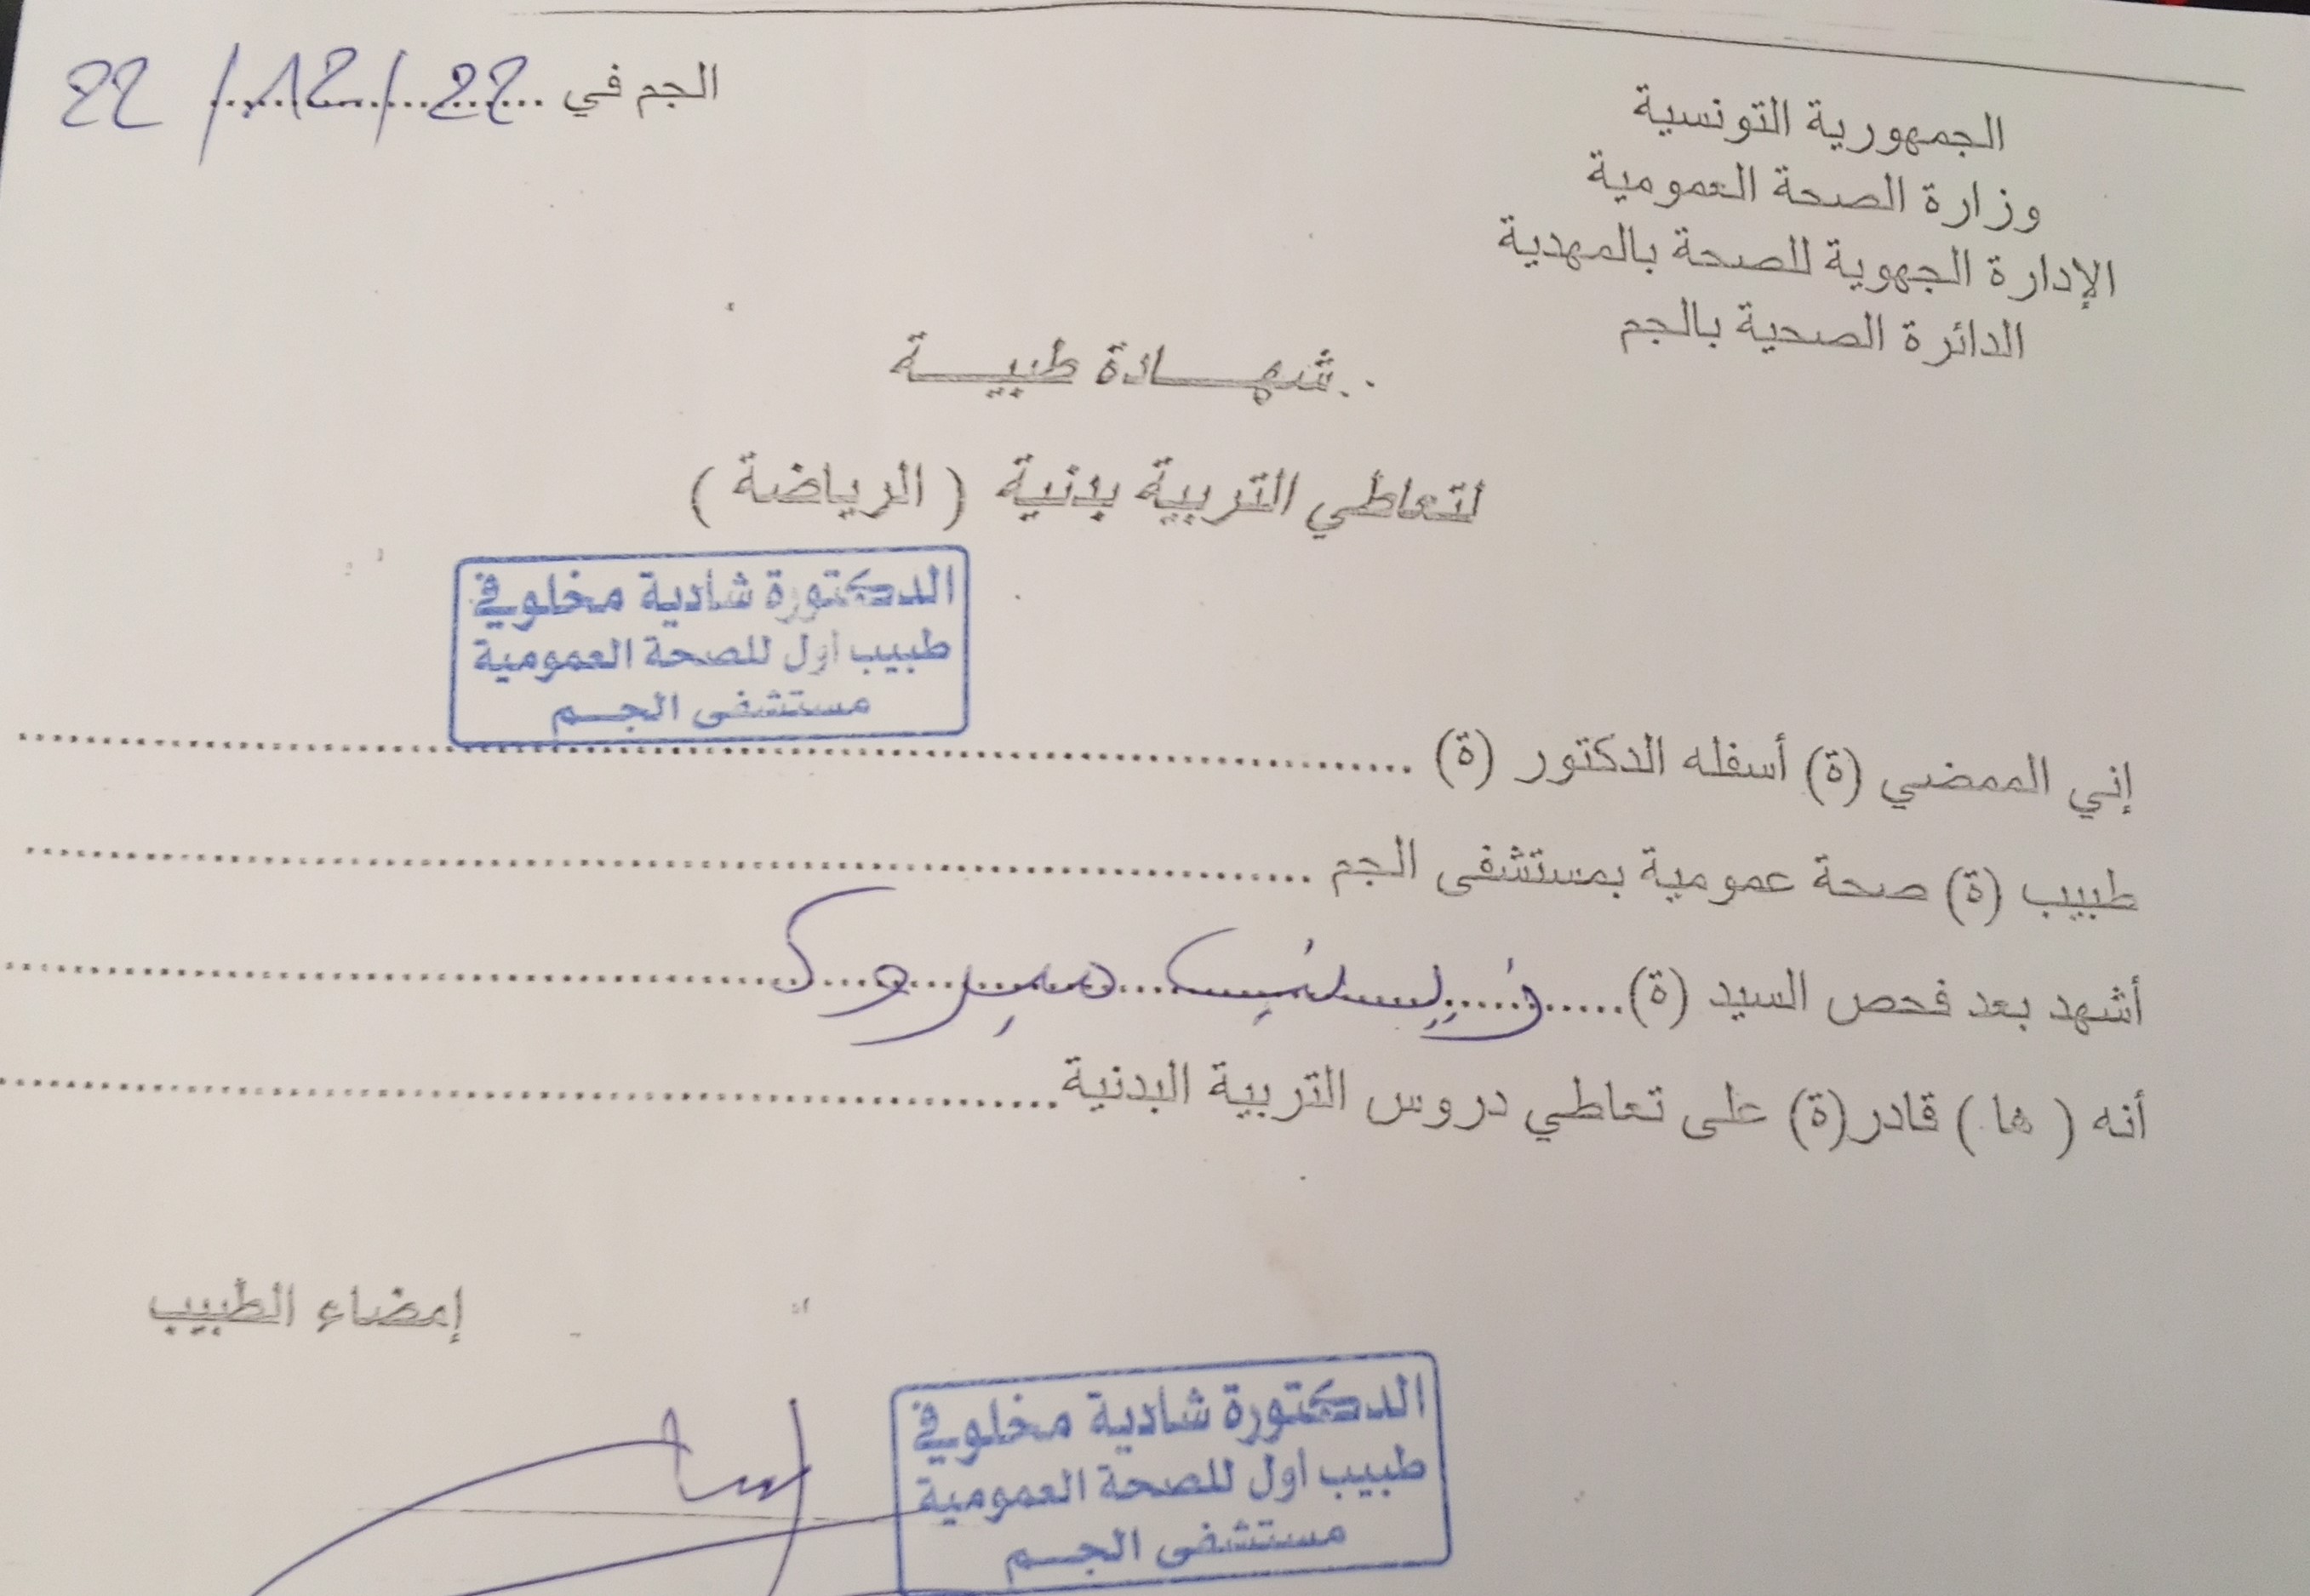 الجمهورية التونسية
وزارة الصحة العمومية
الإدارة الجهوية للصحة بالمهدية
الدائرة الصحية بالجم
الجم في 22/12/22
شهادة طبية
لتعاطي التربية بدنية ( الرياضة )
الدكتورة شادية مخلوفي
طبيب اول للصحة العمومية
مستشفى الجم
إني الممضي (ة) أسفله الدكتور (ة)
طبيب (ة) صحة عمومية بمستشفى الجم
أشهد بعد فحص السيد (ة) زينب مبروك
أنه ( ها ) قادر(ة) على تعاطي دروس التربية البدنية
إمضاء الطبيب
الدكتورة شادية مخلوفي
طبيب اول للصحة العمومية
مستشفى الجم